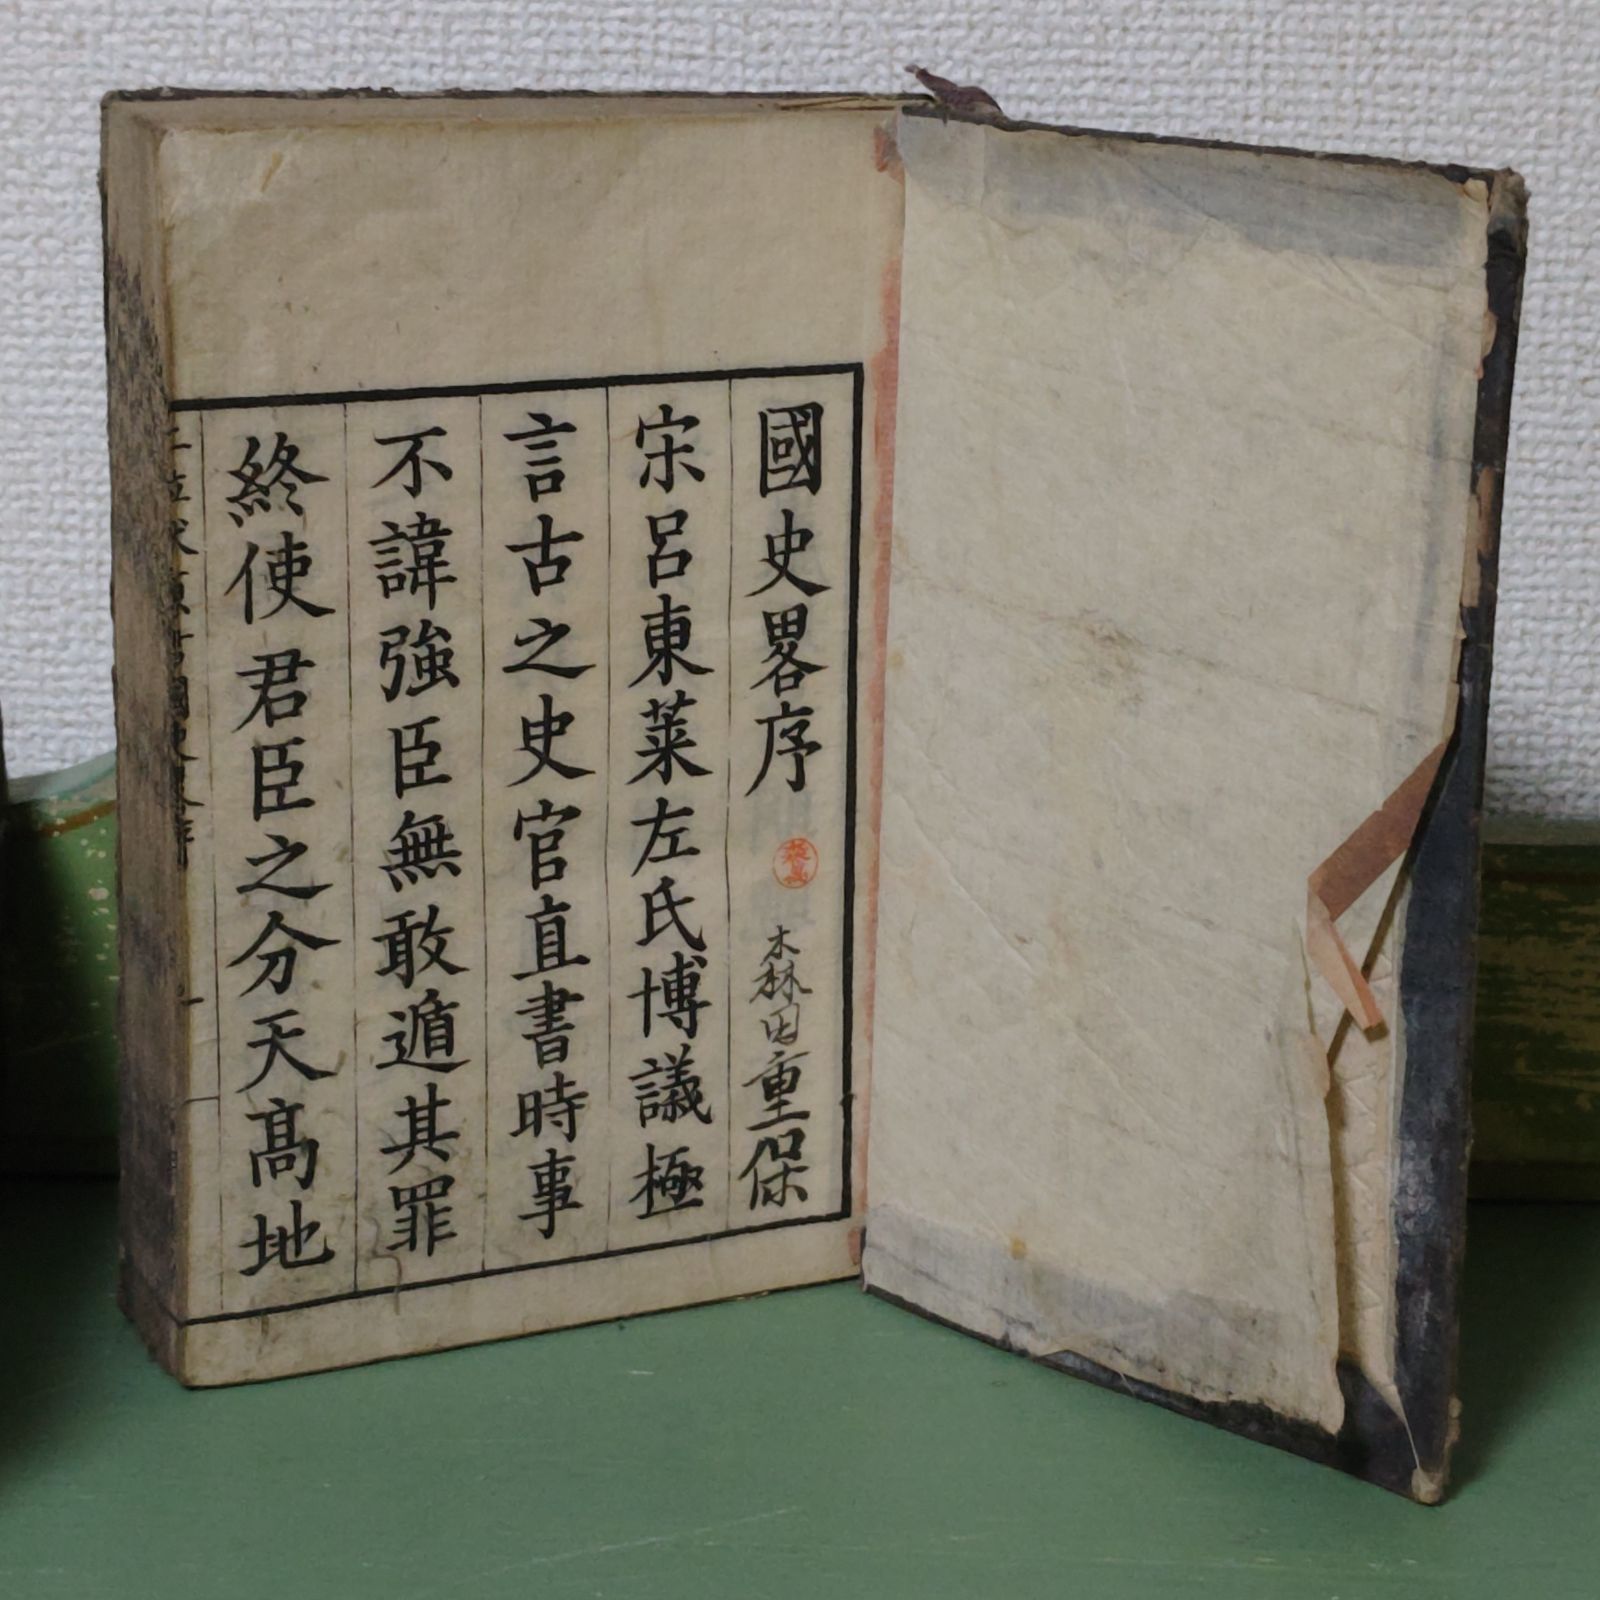 國史畧序 森田重保
宋呂東萊左氏博議極
言古之史官直書時事
不諱強臣無敢遁其罪
終使君臣之分天高地